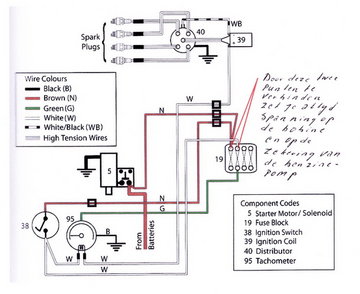 Spark
Plugs
WB
40
39
Wire Colours
Black (B)
Brown (N)
Green (G)
White (W)
White/Black (WB)
High Tension Wires
W
W
N
Door deze twee
Punten te
Verbinden
zet je altijd
Spanning op
de bobine
en op de
zekering van
de benzine-
pomp
5
19
N
G
38
95
B
From
Batteries
W
W
Component Codes
5 Starter Motor / Solenoid
19 Fuse Block
38 Ignition Switch
39 Ignition Coil
40 Distributor
95 Tachometer